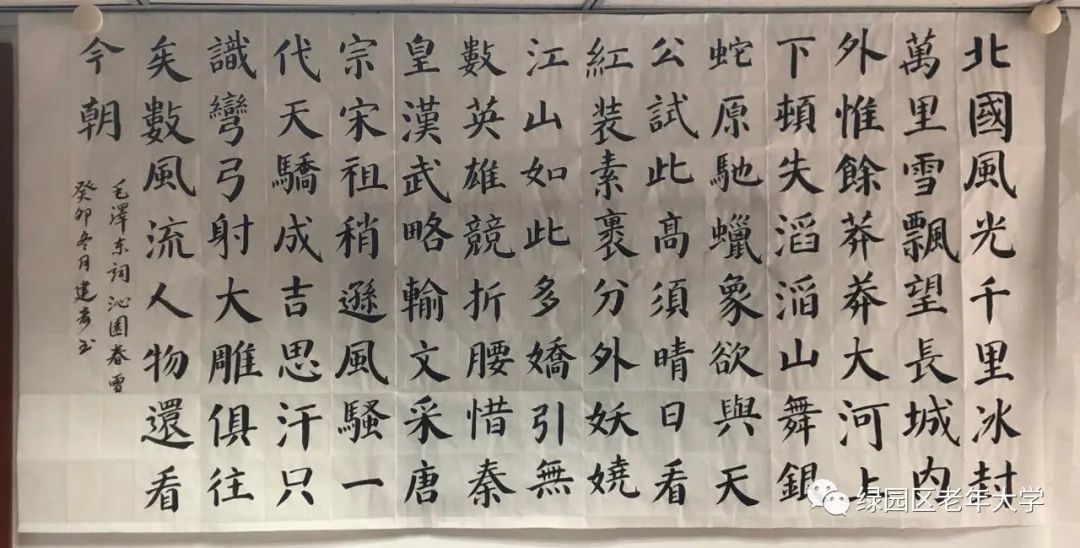 北國風光千里冰封
萬里雪飄望長城内
外惟餘莽莽大河上
下頓失滔滔山舞銀
蛇原馳蠟象欲與天
公試此高須晴日看
紅装素裹分外妖嬈
江山如此多嬌引無
數英雄競折腰惜秦
皇漢武略輸文采唐
宗宋祖稍遜風騷一
代天驕成吉思汗只
識彎弓射大雕俱往
矣數風流人物還看
今朝
毛澤东詞沁園春雪
癸卯冬月建书
绿园区老年大学